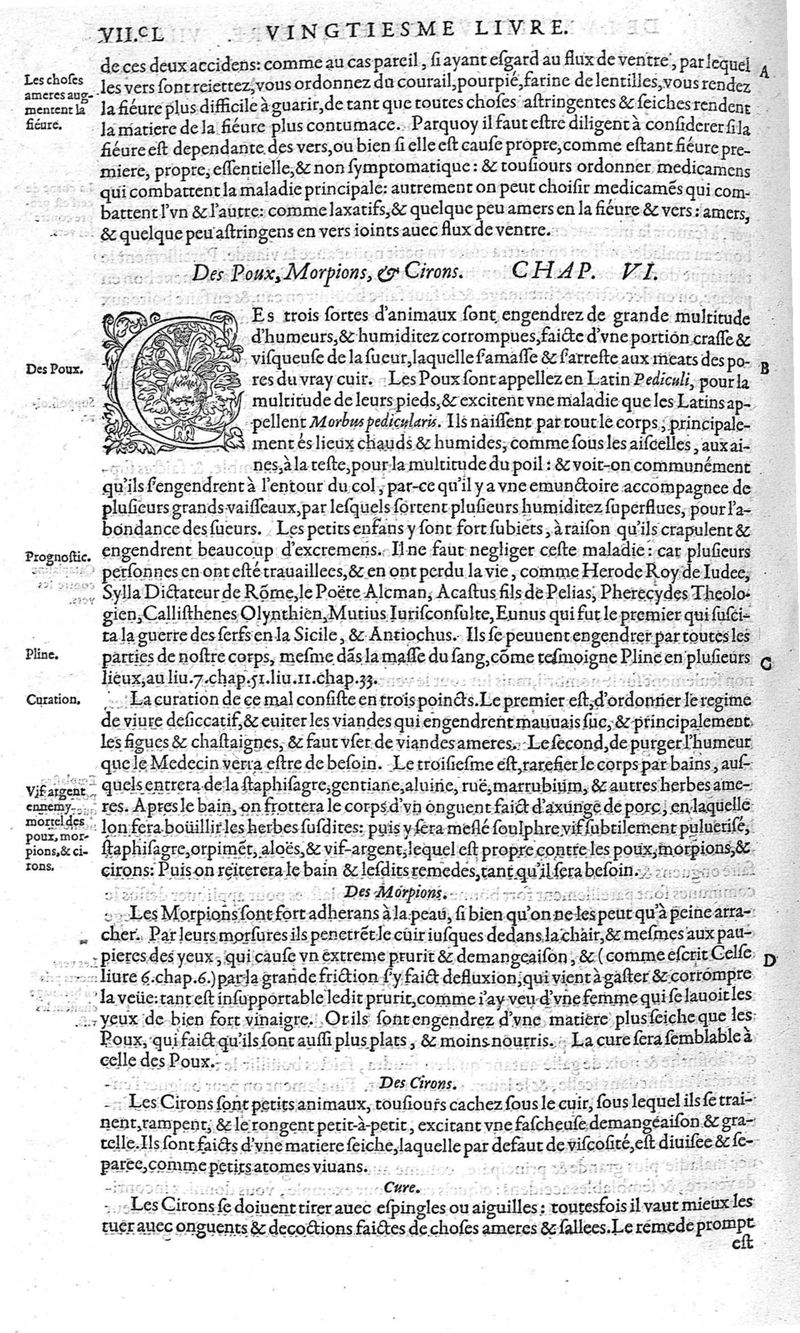 VII.cL VINGTIESME LIVRE.
de ces deux accidens: comme au cas pareil, si ayant esgard au flux de ventre, par lequel A
Les choses
ameres aug-
mentent la
fiéure.
les vers sont reiettez, vous ordonnez du courail, pourpié, farine de lentilles, vous rendez
la fiéure plus difficile à guarir, de tant que toutes choses astringentes & seiches rendent
la matiere de la fiéure plus contumace. Parquoy il faut estre diligent à considerer si la
fiéure est dependante des vers, ou bien si elle est cause propre, comme estant fiéure pre-
miere, propre, essentielle, & non symptomatique: & tousiours ordonner medicamens
qui combattent la maladie principale: autrement on peut choisir medicamẽs qui com-
battent l'vn & l'autre: comme laxatifs, & quelque peu amers en la fiéure & vers: amers,
& quelque peu astringens en vers ioints auec flux de ventre.
Des Poux, Morpions, & Cirons. CHAP. VI.
CEs trois sortes d'animaux sont engendrez de grande multitude
d'humeurs, & humiditez corrompues, faicte d'vne portion crasse &
visqueuse de la sueur, laquelle s'amasse & s'arreste aux meats des po- B
Des Poux.
res du vray cuir. Les Poux sont appellez en Latin Pediculi, pour la
multitude de leurs pieds, & excitent vne maladie que les Latins ap-
pellent Morbus pedicularis. Ils naissent par tout le corps, principale-
ment és lieux chauds & humides, comme sous les aiscelles, aux ai-
nes, à la teste, pour la multitude du poil: & voit-on communément
qu'ils s'engendrent à l'entour du col, par-ce qu'il y a vne emunctoire accompagnee de
plusieurs grands vaisseaux, par lesquels sortent plusieurs humiditez superflues, pour l'a-
bondance des sueurs. Les petits enfans y sont fort subiets, à raison qu'ils crapulent &
Prognostic.
engendrent beaucoup d'excremens. Il ne faut negliger ceste maladie: car plusieurs
personnes en ont esté trauaillees, & en ont perdu la vie, comme Herode Roy de Iudee,
Sylla Dictateur de Rõme, le Poëte Alcman, Acastus fils de Pelias, Pherecydes Theolo-
gien, Callisthenes Olynthien, Mutius Iurisconsulte, Eunus qui fut le premier qui susci-
ta la guerre des serfs en la Sicile, & Antiochus. Ils se peuuent engendrer par toutes les
Pline.
parties de nostre corps, mesme dãs la masse du sang, cõme tesmoigne Pline en plusieurs C
lieux, au liu.7.chap.51.liu.11.chap.33.
Curation.
La curation de ce mal consiste en trois poincts. Le premier est, d'ordonner le regime
de viure desiccatif, & euiter les viandes qui engendrent mauuais suc, & principalement
les figues & chastaignes, & faut vser de viandes ameres. Le second, de purger l'humeur
que le Medecin verra estre de besoin. Le troisiesme est, rarefier le corps par bains, aus-
Vif argent
ennemy
mortel des
poux, mor-
pions, & ci-
rons.
quels entrera de la staphisagre, gentiane, aluine, ruë, marrubium, & autres herbes ame-
res. Apres le bain, on frottera le corps d'vn onguent faict d'axunge de porc, en laquelle
lon fera boüillir les herbes susdites: puis y sera meslé soulphre vif subtilement puluerisé,
staphisagre, orpimẽt, aloës, & vif-argent, lequel est propre contre les poux, morpions, &
cirons: Puis on reïterera le bain & lesdits remedes, tant qu'il sera besoin.
Des Morpions.
Les Morpions sont fort adherans à la peau, si bien qu'on ne les peut qu'à peine arra-
cher. Par leurs morsures ils penetrẽt le cuir iusques dedans la chair, & mesmes aux pau-
pieres des yeux, qui cause vn extreme prurit & demangeaison, & (comme escrit Celse D
liure 6.chap.6.) par la grande friction s'y faict defluxion, qui vient à gaster & corrompre
la veüe: tant est insupportable ledit prurit, comme i'ay veu d'vne femme qui se lauoit les
yeux de bien fort vinaigre. Or ils sont engendrez d'vne matiere plus seiche que les
Poux, qui faict qu'ils sont aussi plus plats, & moins nourris. La cure sera semblable à
celle des Poux.
Des Cirons.
Les Cirons sont petits animaux, tousiours cachez sous le cuir, sous lequel ils se trai-
nent, rampent, & le rongent petit-à-petit, excitant vne fascheuse demangeaison & gra-
telle. Ils sont faicts d'vne matiere seiche, laquelle par defaut de viscosité, est diuisee & se-
paree, comme petits atomes viuans.
Cure.
Les Cirons se doiuent tirer auec espingles ou aiguilles: toutesfois il vaut mieux les
tuer auec onguents & decoctions faictes de choses ameres & sallees. Le remede prompt
est